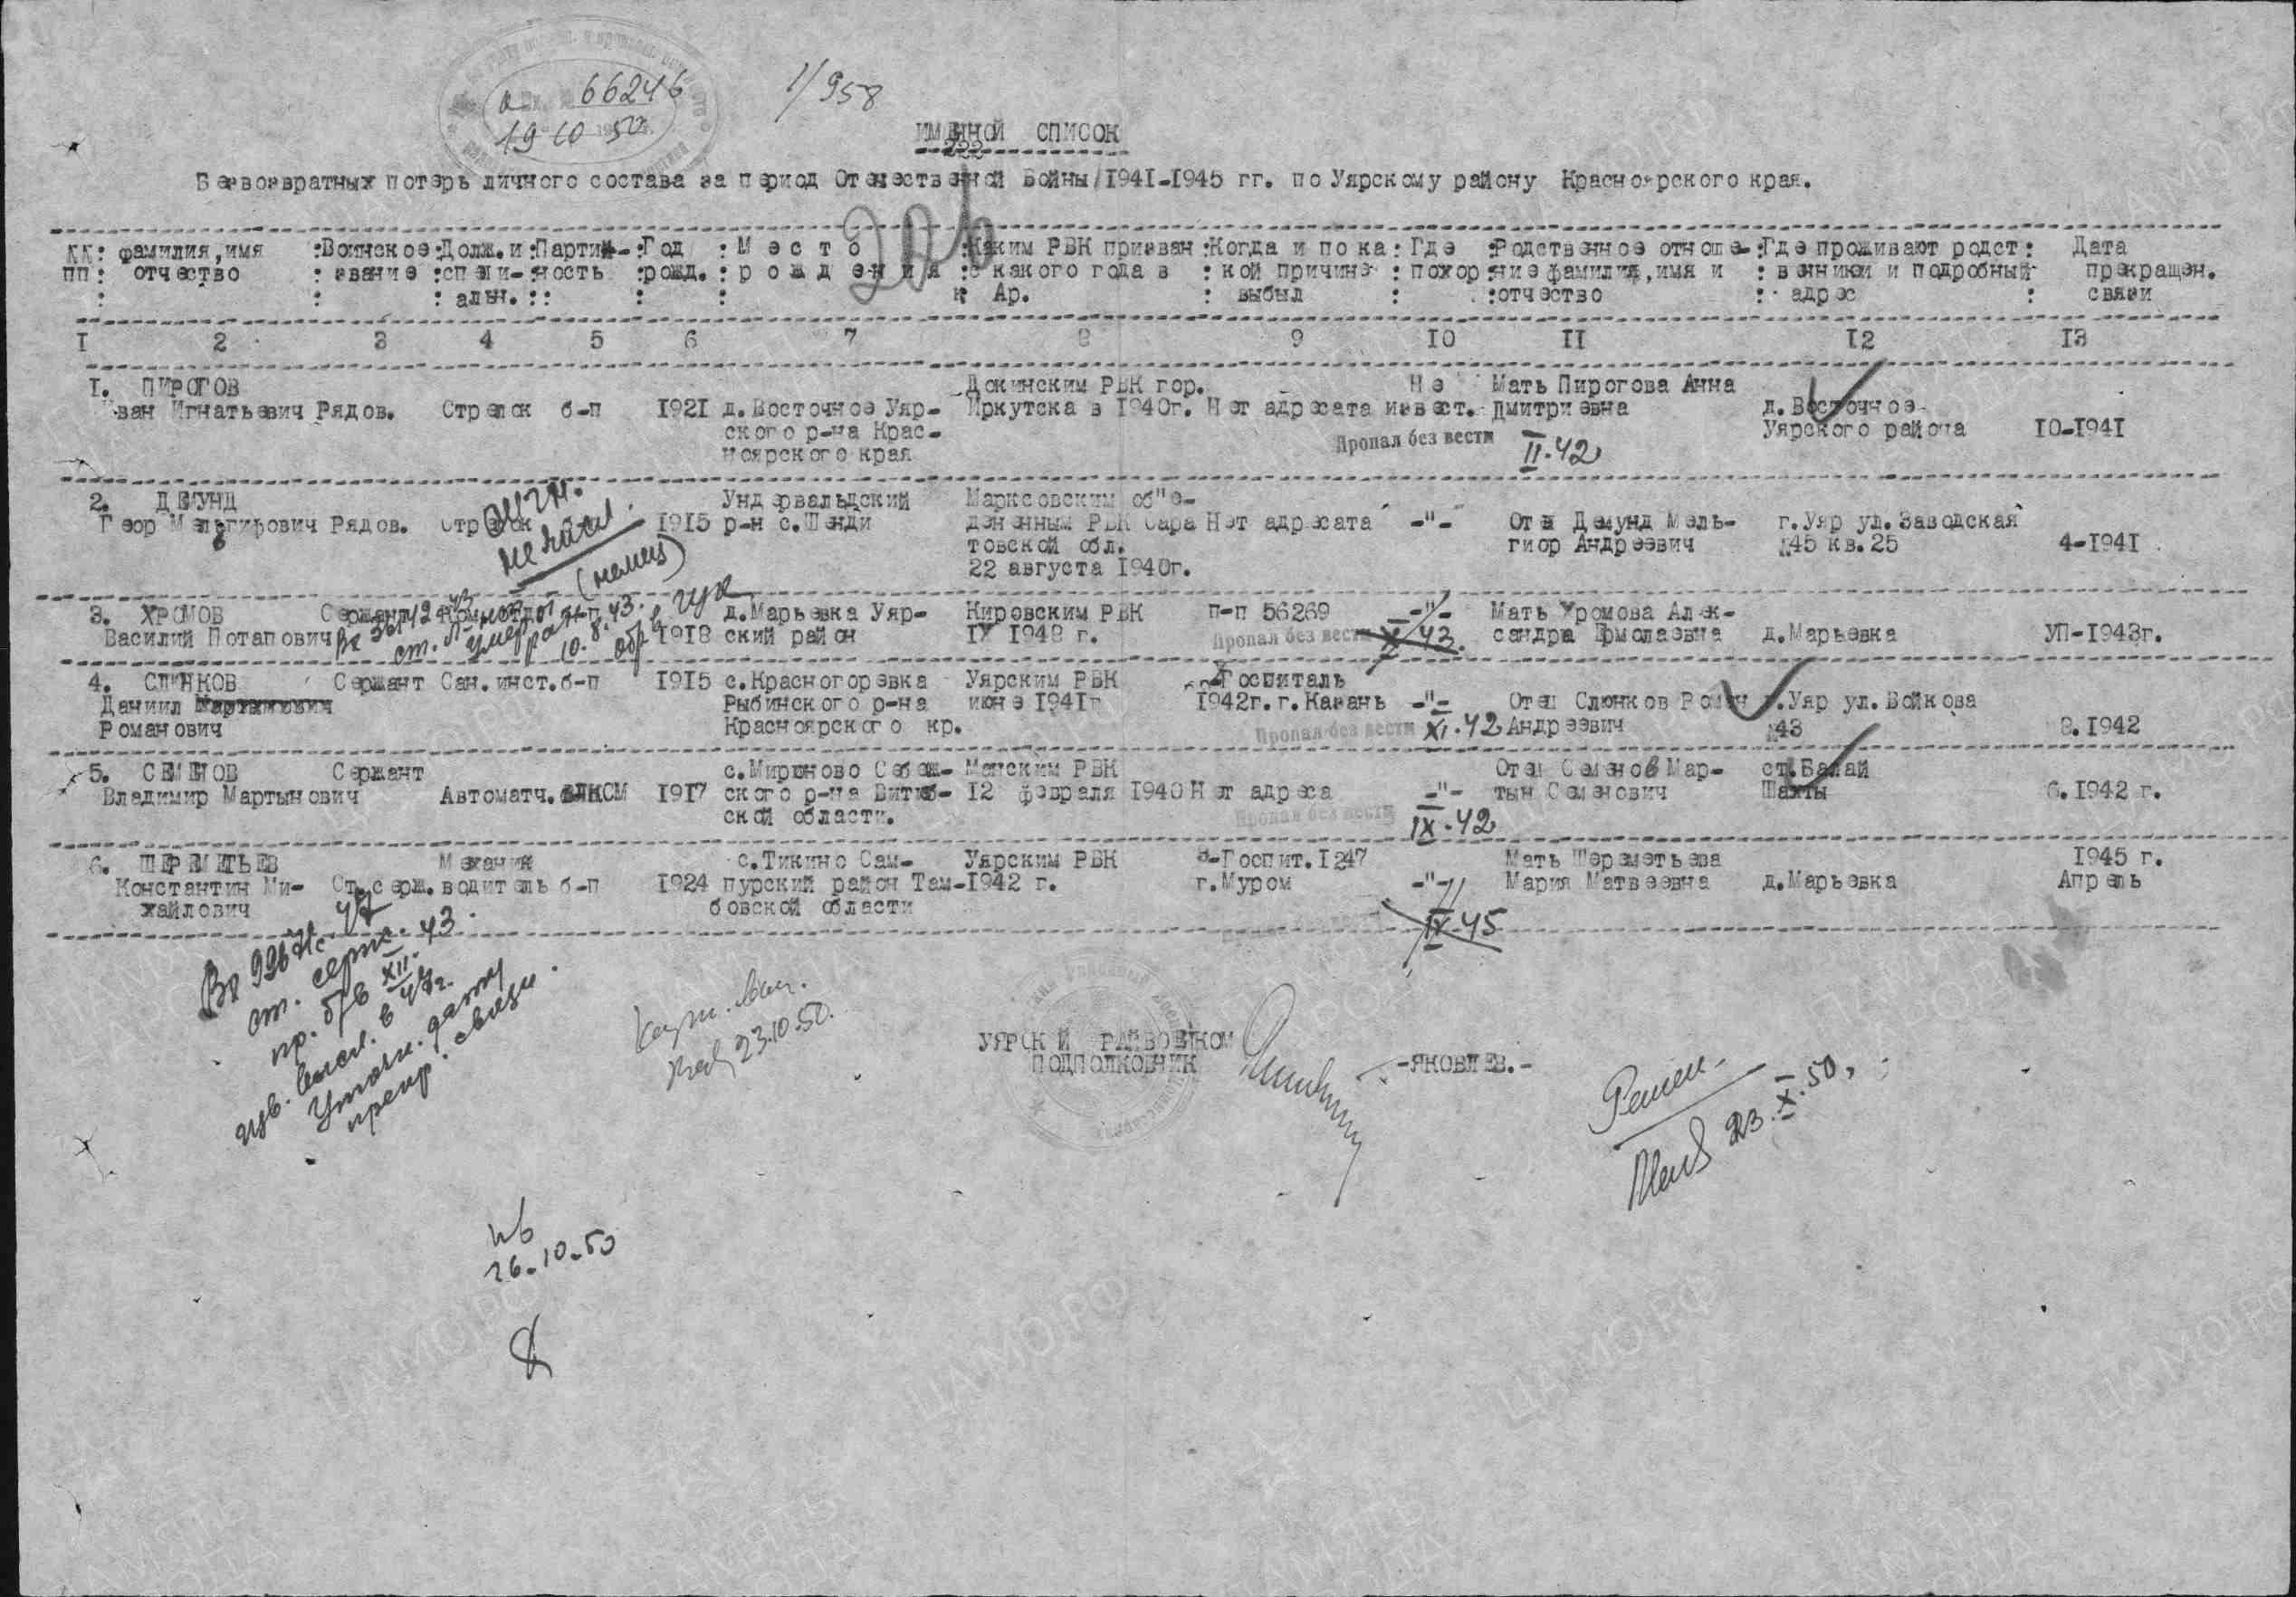 66246
19 10 50
1/958
ИМЕННОЙ СПИСОК
222
Безвозвратных потерь личного состава за период Отечественной Войны 1941-1945 гг. по Уярскому району Красноярского края.
КК: фамилия, имя :Воинское:Долж. и :Партий- :Год : М е с т о :Каким РВК призван :Когда и по ка : Где :Родственное отноше- :Где проживают родст : Дата
пп: отчество : звание :специ- :ность :рожд. : р о ж д е н и я :с какого года в : кой причине : похор :ние фамилия, имя и : венники и подробный прекращен.
: : : альн. : : : : к Ар. : выбыл : :отчество : адрес : связи
1 2 3 4 5 6 7 8 9 10 11 12 13
1. ПИРОГОВ Докинским РВК гор. Не Мать Пирогова Анна
Иван Игнатьевич Рядов. Стрелок б-п 1921 д. Восточное Уяр- Иркутска в 1940г. Нет адресата извест. Дмитриевна д. Восточное
ского р-на Крас- Пропал без вести II.42 Уярского района 10-1941
ноярского края
2. ДЕМУНД Ундервальдский Марксовским об"е-
Геор Мельгирович Рядов. Стрелок 1915 р-н с. Шенди дененным РВК Сара Нет адресата -"- Отец Демунд Мель- г. Уяр ул. Заводская
товской обл. гиор Андреевич №45 кв. 25 4-1941
22 августа 1940г.
(немец)
3. ХРОМОВ Сержант д. Марьевка Уяр- Кировским РВК п-п 56269 -"- Мать Хромова Алек-
Василий Потапович 1918 ский район IX 1948 г. Пропал без вести X 43. сандра Ермолаевна д. Марьевка УП-1943г.
ст. л-нт
умер от ран
10.8.43.
4. СЛЮНКОВ Сержант Сан. инст. б-п 1915 с. Красногоревка Уярским РВК Госпиталь
Даниил Мартынович Рыбинского р-на июне 1941г 1942г. г. Казань -"- Отец Слюнков Роман г. Уяр ул. Бойкова
Романович Красноярского кр. Пропал без вести XI.42 Андреевич №43 8.1942
5. СЕМЕНОВ Сержант с. Мироново Себеж- Манским РВК Отец Семенов Мар- ст. Балай
Владимир Мартынович Автоматч. ВЛКСМ 1917 ского р-на Витеб- 12 февраля 1940 Нет адреса -"- тын Семенович Шахты 6.1942 г.
ской области. Пропал без вести IX.42
6. ШЕРЕМЕТЬЕВ Механик с. Тикино Сам- Уярским РВК Э-Госпит. 1247 Мать Шереметьева 1945 г.
Константин Ми- Ст. серж. водитель б-п 1924 пурский район Там- 1942 г. г. Муром -"- Мария Матвеевна д. Марьевка Апрель
хайлович бовской области
IX-45
ст. серж.
пр. б/в XII.43.
изв. высл. в 47г.
Уточн. дату
прекр. связи.
23.10.50.
УЯРСКИЙ РАЙВОЕНКОМ
ПОДПОЛКОВНИК -ЯКОВЛЕВ.-
23.X.50.
26-10-50